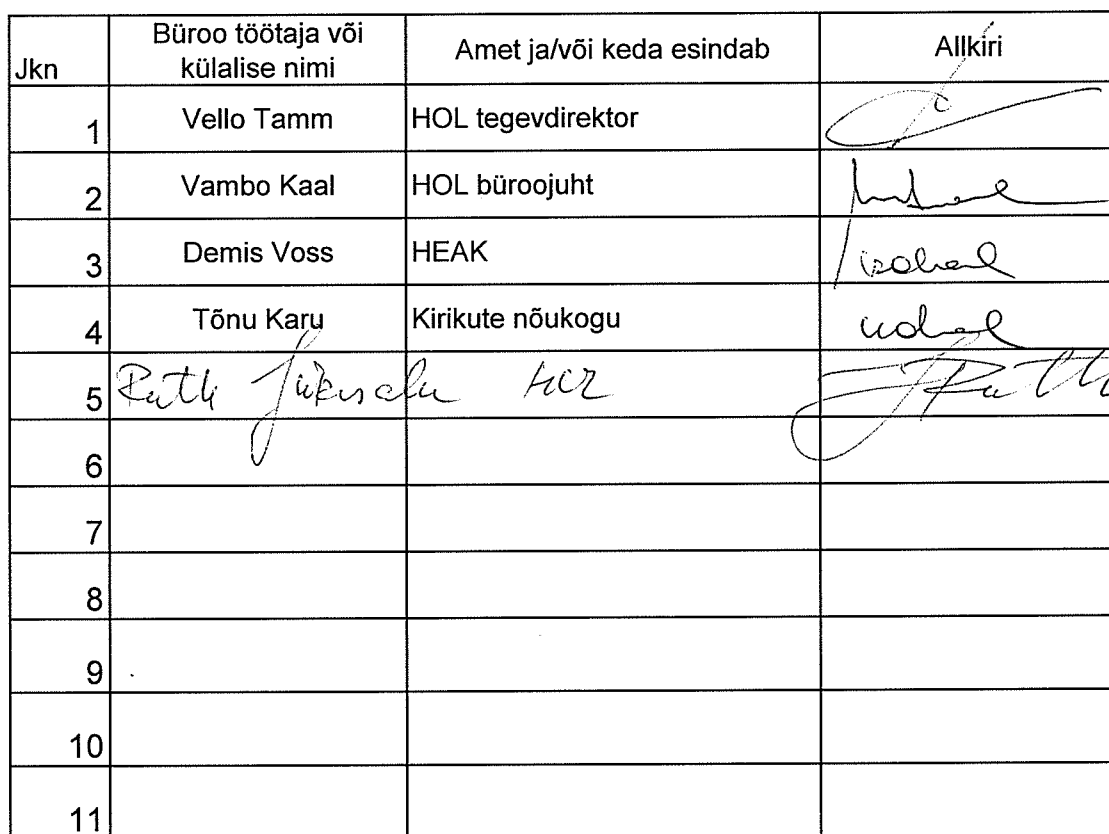 Jkn Büroo töötaja või külalise nimi Amet ja/või keda esindab Allkiri
1 Vello Tamm HOL tegevdirektor
2 Vambo Kaal HOL büroojuht
3 Demis Voss HEAK kohal
4 Tõnu Karu Kirikute nõukogu kohal
5 Ruth
6
7
8
9
10
11